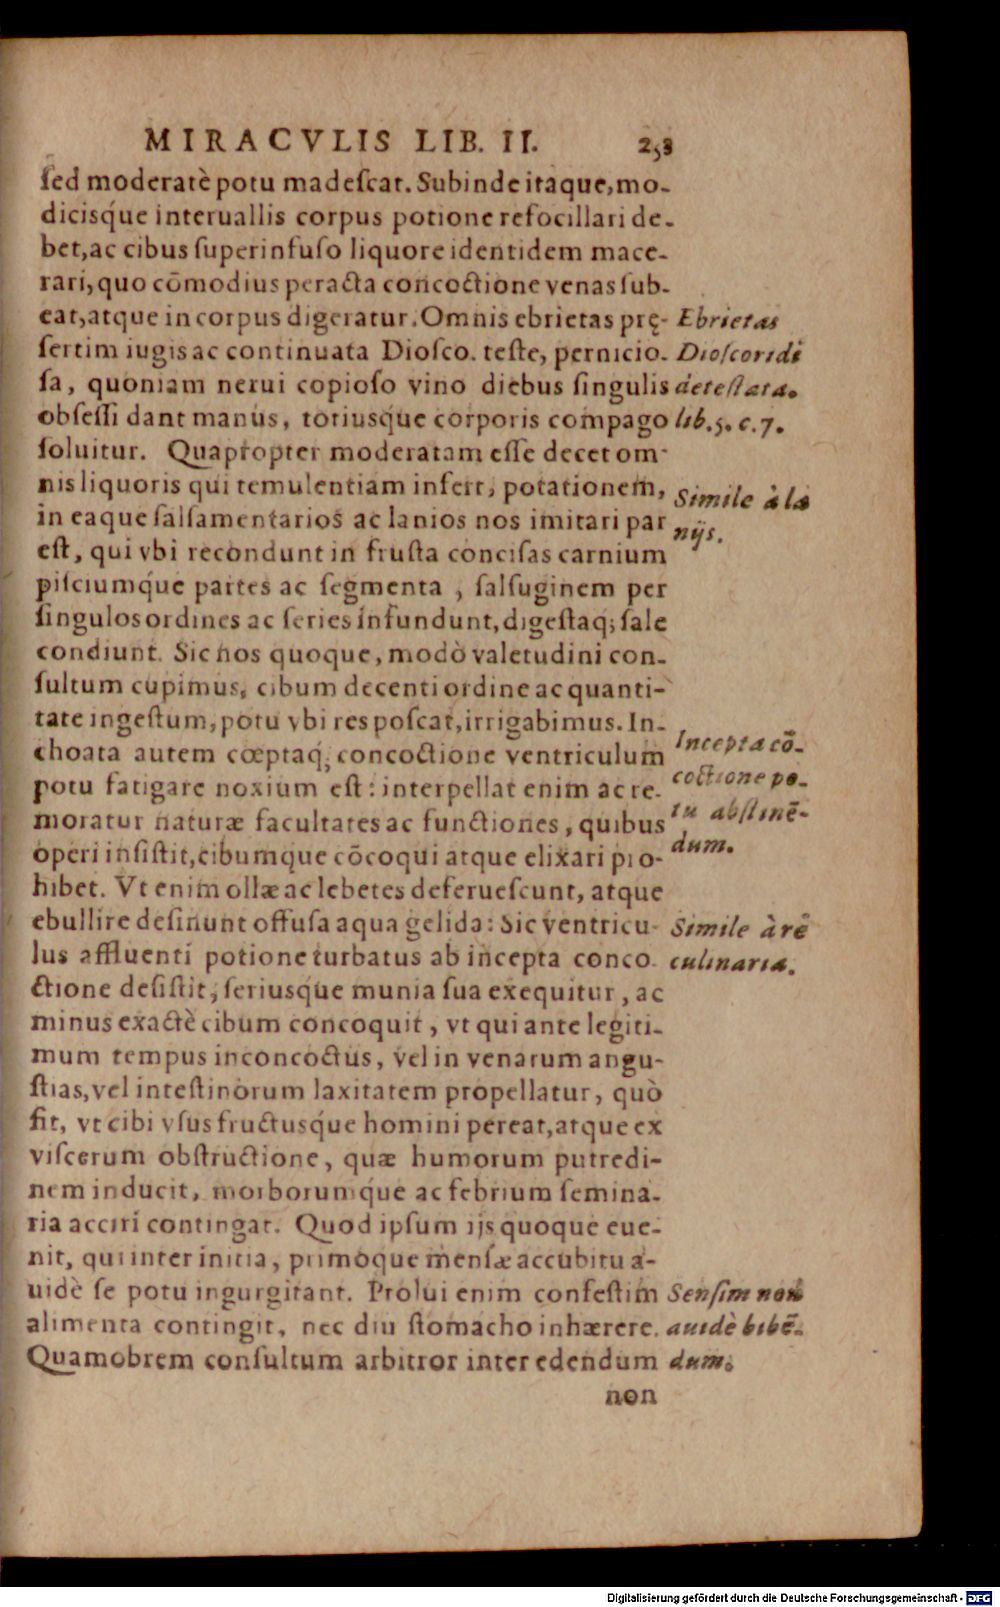 MIRACVLIS LIB. II. 253
ſed moderatè potu madeſcat. Subinde itaque, mo-
diciſq́ue interuallis corpus potione refocillari de-
bet, ac cibus ſuperinfuſo liquore identidem mace-
rari, quo cõmodius peracta concoctione venas ſub-
eat, atque in corpus digeratur. Omnis ebrietas prę-
ſertim iugis ac continuata Dioſco. teſte, pernicio-
ſa, quoniam nerui copioſo vino diebus ſingulis
obſeſſi dant manus, totiusq́ue corporis compago
ſoluitur. Quapropter moderatam eſſe decet om-
nis liquoris qui temulentiam infert, potationem,
in eaque ſalſamentarios ac lanios nos imitari par
eſt, qui vbi recondunt in fruſta conciſas carnium
piſciumq́ue partes ac ſegmenta, ſalſuginem per
ſingulos ordines ac ſeries infundunt, digeſtaq; ſale
condiunt. Sic nos quoque, modò valetudini con-
ſultum cupimus, cibum decenti ordine ac quanti-
tate ingeſtum, potu vbi res poſcat, irrigabimus. In-
choata autem cœptaq; concoctione ventriculum
potu fatigare noxium eſt: interpellat enim ac re-
moratur naturæ facultates ac functiones, quibus
operi inſiſtit, cibumque cõcoqui atque elixari pro-
hibet. Vt enim ollæ ac lebetes deferueſcunt, atque
ebullire deſinunt offuſa aqua gelida: Sic ventricu-
lus affluenti potione turbatus ab incepta conco-
ctione deſiſtit, ſeriusq́ue munia ſua exequitur, ac
minus exactè cibum concoquit, vt qui ante legiti-
mum tempus inconcoctus, vel in venarum angu-
ſtias, vel inteſtinorum laxitatem propellatur, quò
fit, vt cibi vſus fructusq́ue homini pereat, atque ex
viſcerum obſtructione, quæ humorum putredi-
nem inducit, morborumq́ue ac febrium ſemina-
ria acciri contingat. Quod ipſum ijs quoque eue-
nit, qui inter initia, primoque menſæ accubitu a-
uidè ſe potu ingurgitant. Prolui enim confeſtim
alimenta contingit, nec diu ſtomacho inhærere.
Quamobrem conſultum arbitror inter edendum
non
Ebrietas
Dioſcoridi
deteſtata.
lib. 5. c. 7.
Simile à la
nijs.
Incepta cõ-
coctione po-
tu abſtinẽ-
dum.
Simile à rẽ
culinaria.
Senſim non
auidè bibẽ-
dum.
Digitalisierung gefördert durch die Deutsche Forschungsgemeinschaft - DFG